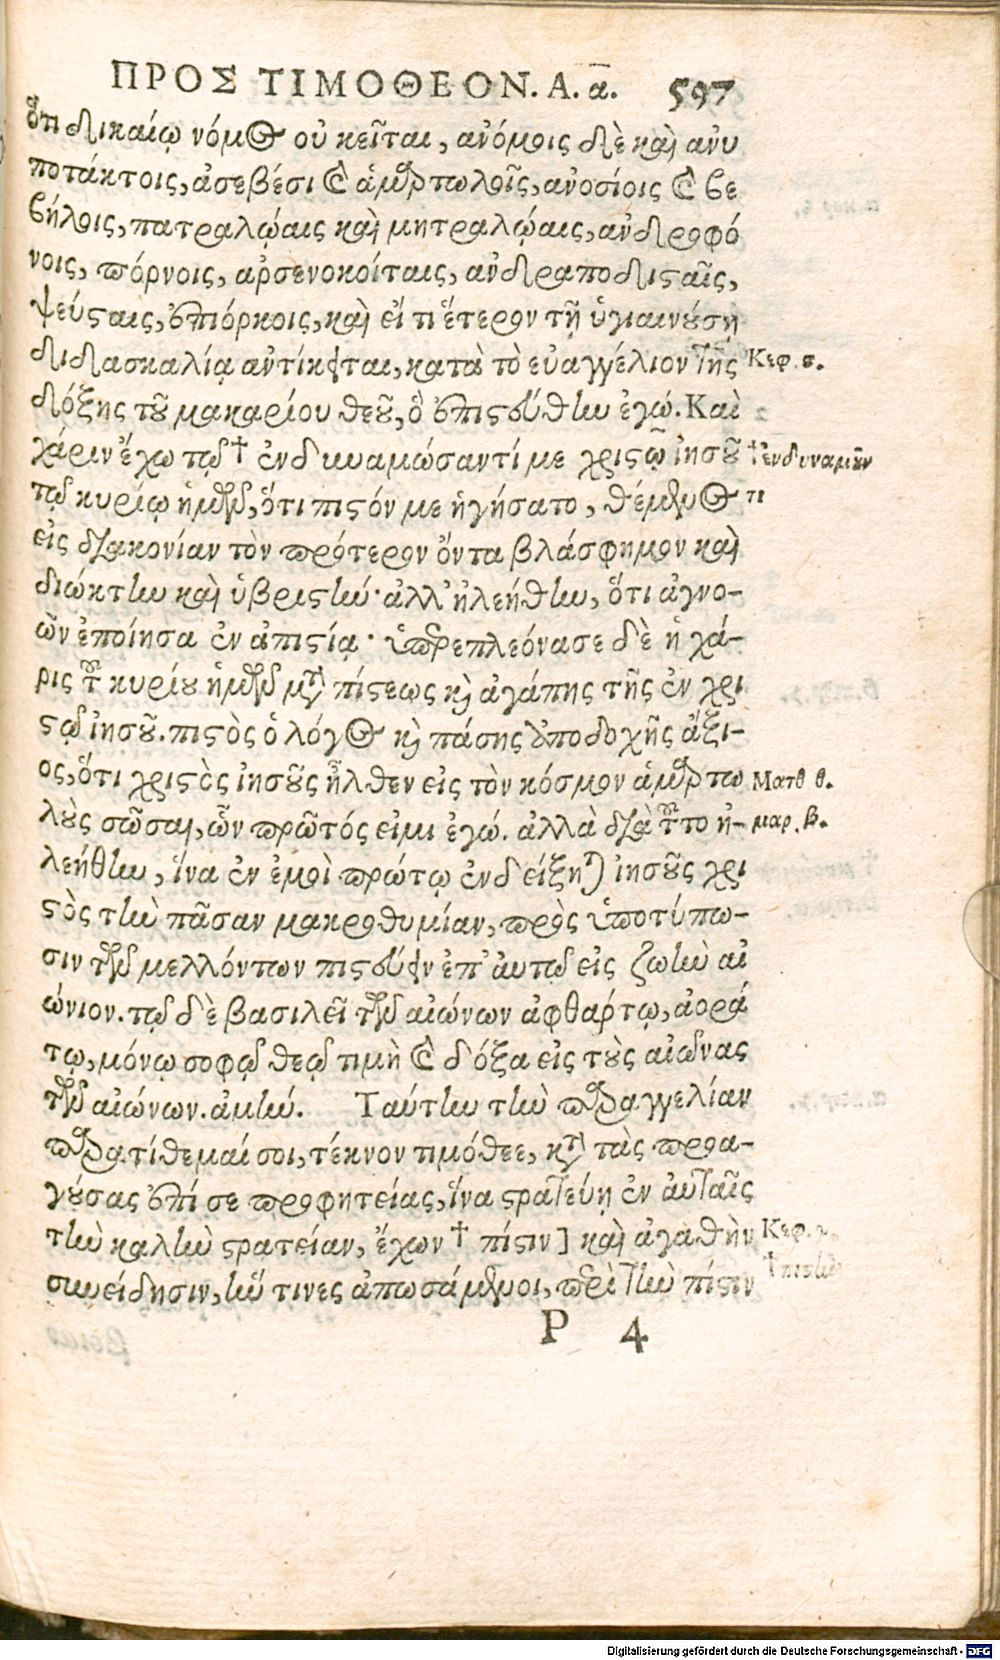 ΠΡΟΣ ΤΙΜΟΘΕΟΝ. Α. α. 597
ὅτι δικαίῳ νόμος οὐ κεῖται, ἀνόμοις δὲ καὶ ἀνυ
ποτάκτοις, ἀσεβέσι καὶ ἁμαρτωλοῖς, ἀνοσίοις καὶ βε
βήλοις, πατραλῴαις καὶ μητραλῴαις, ἀνδροφό
νοις, πόρνοις, ἀρσενοκοίταις, ἀνδραποδισταῖς,
ψεύσταις, ἐπιόρκοις, καὶ εἴ τι ἕτερον τῇ ὑγιαινούσῃ
διδασκαλίᾳ ἀντίκειται, κατὰ τὸ εὐαγγέλιον τῆς Κεφ. β.
δόξης τοῦ μακαρίου θεοῦ, ὃ ἐπιστεύθην ἐγώ. Καὶ
χάριν ἔχω τῷ † ἐνδυναμώσαντί με χριστῷ ἰησοῦ † ἐνδυναμοῦν
τῷ κυρίῳ ἡμῶν, ὅτι πιστόν με ἡγήσατο, θέμενος τι
εἰς διακονίαν τὸν πρότερον ὄντα βλάσφημον καὶ
διώκτην καὶ ὑβριστήν· ἀλλ' ἠλεήθην, ὅτι ἀγνο-
ῶν ἐποίησα ἐν ἀπιστίᾳ· ὑπερεπλεόνασε δὲ ἡ χά-
ρις τοῦ κυρίου ἡμῶν μετὰ πίστεως καὶ ἀγάπης τῆς ἐν χρι
στῷ ἰησοῦ. πιστὸς ὁ λόγος καὶ πάσης ἀποδοχῆς ἄξι-
ος, ὅτι χριστὸς ἰησοῦς ἦλθεν εἰς τὸν κόσμον ἁμαρτω Ματθ θ.
λοὺς σῶσαι, ὧν πρῶτός εἰμι ἐγώ. ἀλλὰ διὰ τοῦτο ἠ- μαρ. β.
λεήθην, ἵνα ἐν ἐμοὶ πρώτῳ ἐνδείξηται ἰησοῦς χρι
στὸς τὴν πᾶσαν μακροθυμίαν, πρὸς ὑποτύπω-
σιν τῶν μελλόντων πιστεύειν ἐπ' αὐτῷ εἰς ζωὴν αἰ
ώνιον. τῷ δὲ βασιλεῖ τῶν αἰώνων ἀφθάρτῳ, ἀορά
τῳ, μόνῳ σοφῷ θεῷ τιμὴ καὶ δόξα εἰς τοὺς αἰῶνας
τῶν αἰώνων. ἀμήν. Ταύτην τὴν παραγγελίαν
παρατίθεμαί σοι, τέκνον τιμόθεε, κατὰ τὰς προα-
γούσας ἐπί σε προφητείας, ἵνα στρατεύῃ ἐν αὐταῖς
τὴν καλὴν στρατείαν, ἔχων † πίστιν] καὶ ἀγαθὴν Κεφ. γ.
συνείδησιν, ἥν τινες ἀπωσάμενοι, περὶ τὴν πίστιν
P 4
Digitalisierung gefördert durch die Deutsche Forschungsgemeinschaft - DFG